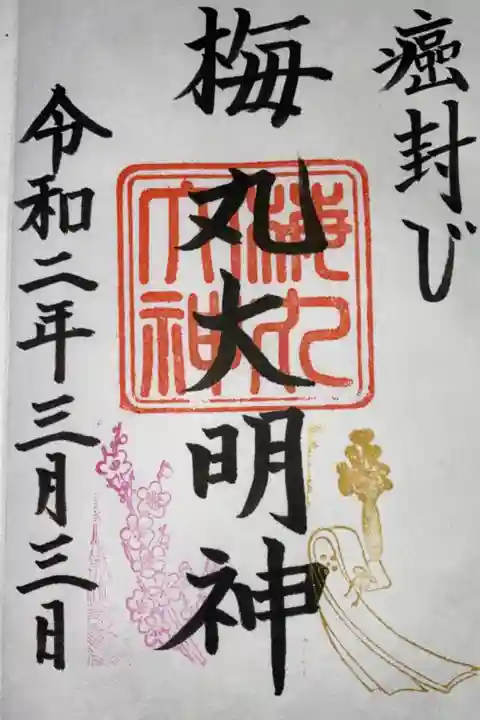 癌封び
梅丸大明神
令和二年三月三日